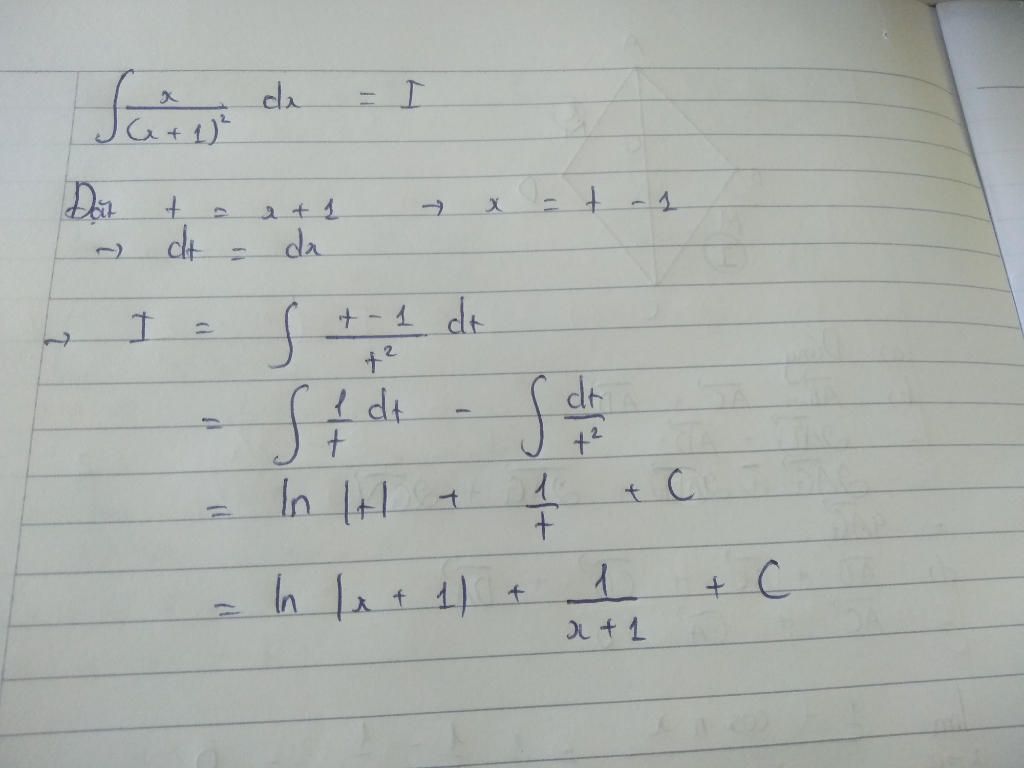 ∫ x/(x+1)² dx = I
Đặt t = x+1 → x = t - 1
→ dt = dx
→ I = ∫ (t-1)/t² dt
= ∫ 1/t dt - ∫ dt/t²
= ln |t| + 1/t + C
= ln |x + 1| + 1/(x+1) + C